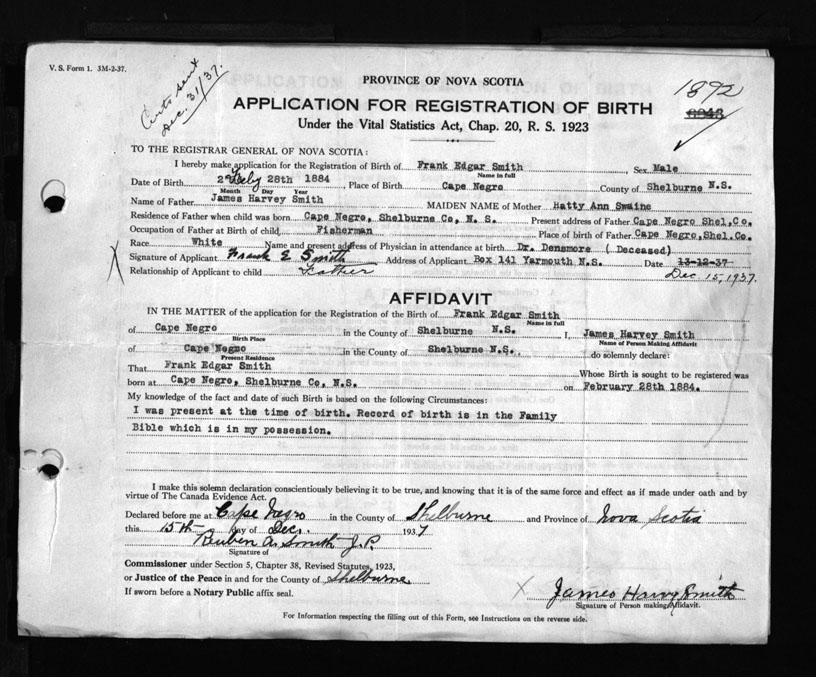 V. S. Form 1. 3M-2-37.
Certs sent
Dec. 31/37.
PROVINCE OF NOVA SCOTIA
1892
APPLICATION FOR REGISTRATION OF BIRTH
Under the Vital Statistics Act, Chap. 20, R. S. 1923
TO THE REGISTRAR GENERAL OF NOVA SCOTIA:
I hereby make application for the Registration of Birth of Frank Edgar Smith, Sex Male
Name in full
Date of Birth 2 Feby 28th 1884, Place of Birth Cape Negro County of Shelburne N.S.
Month Day Year
Name of Father James Harvey Smith MAIDEN NAME of Mother Hatty Ann Swaine
Residence of Father when child was born Cape Negro, Shelburne Co, N. S. Present address of Father Cape Negro Shel.Co.
Occupation of Father at Birth of child, Fisherman Place of birth of Father Cape Negro, Shel.Co.
Race White Name and present address of Physician in attendance at birth Dr. Densmore ( Deceased)
X Signature of Applicant Frank E Smith Address of Applicant Box 141 Yarmouth N.S. Date 13-12-37-
Relationship of Applicant to child Father Dec 15, 1937.
AFFIDAVIT
IN THE MATTER of the application for the Registration of the Birth of Frank Edgar Smith
Name in full
of Cape Negro in the County of Shelburne N.S. I, James Harvey Smith
Birth Place Name of Person Making Affidavit
of Cape Negro in the County of Shelburne N.S. do solemnly declare:
Present Residence
That Frank Edgar Smith Whose Birth is sought to be registered was
born at Cape Negro, Shelburne Co, N.S. on February 28th 1884.
My knowledge of the fact and date of such Birth is based on the following Circumstances:
I was present at the time of birth. Record of birth is in the Family
Bible which is in my possession.
I make this solemn declaration conscientiously believing it to be true, and knowing that it is of the same force and effect as if made under oath and by
virtue of The Canada Evidence Act.
Declared before me at Cape Negro in the County of Shelburne and Province of Nova Scotia
this 15th day of Dec. 1937
Reuben A. Smith J.P.
Signature of
Commissioner under Section 5, Chapter 38, Revised Statutes, 1923,
or Justice of the Peace in and for the County of Shelburne
If sworn before a Notary Public affix seal.
X James Harvy Smith
Signature of Person making Affidavit.
For Information respecting the filling out of this Form, see Instructions on the reverse side.